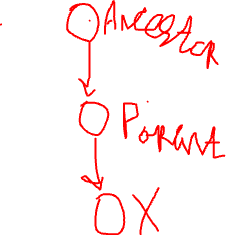 Ancestor
Parent
X